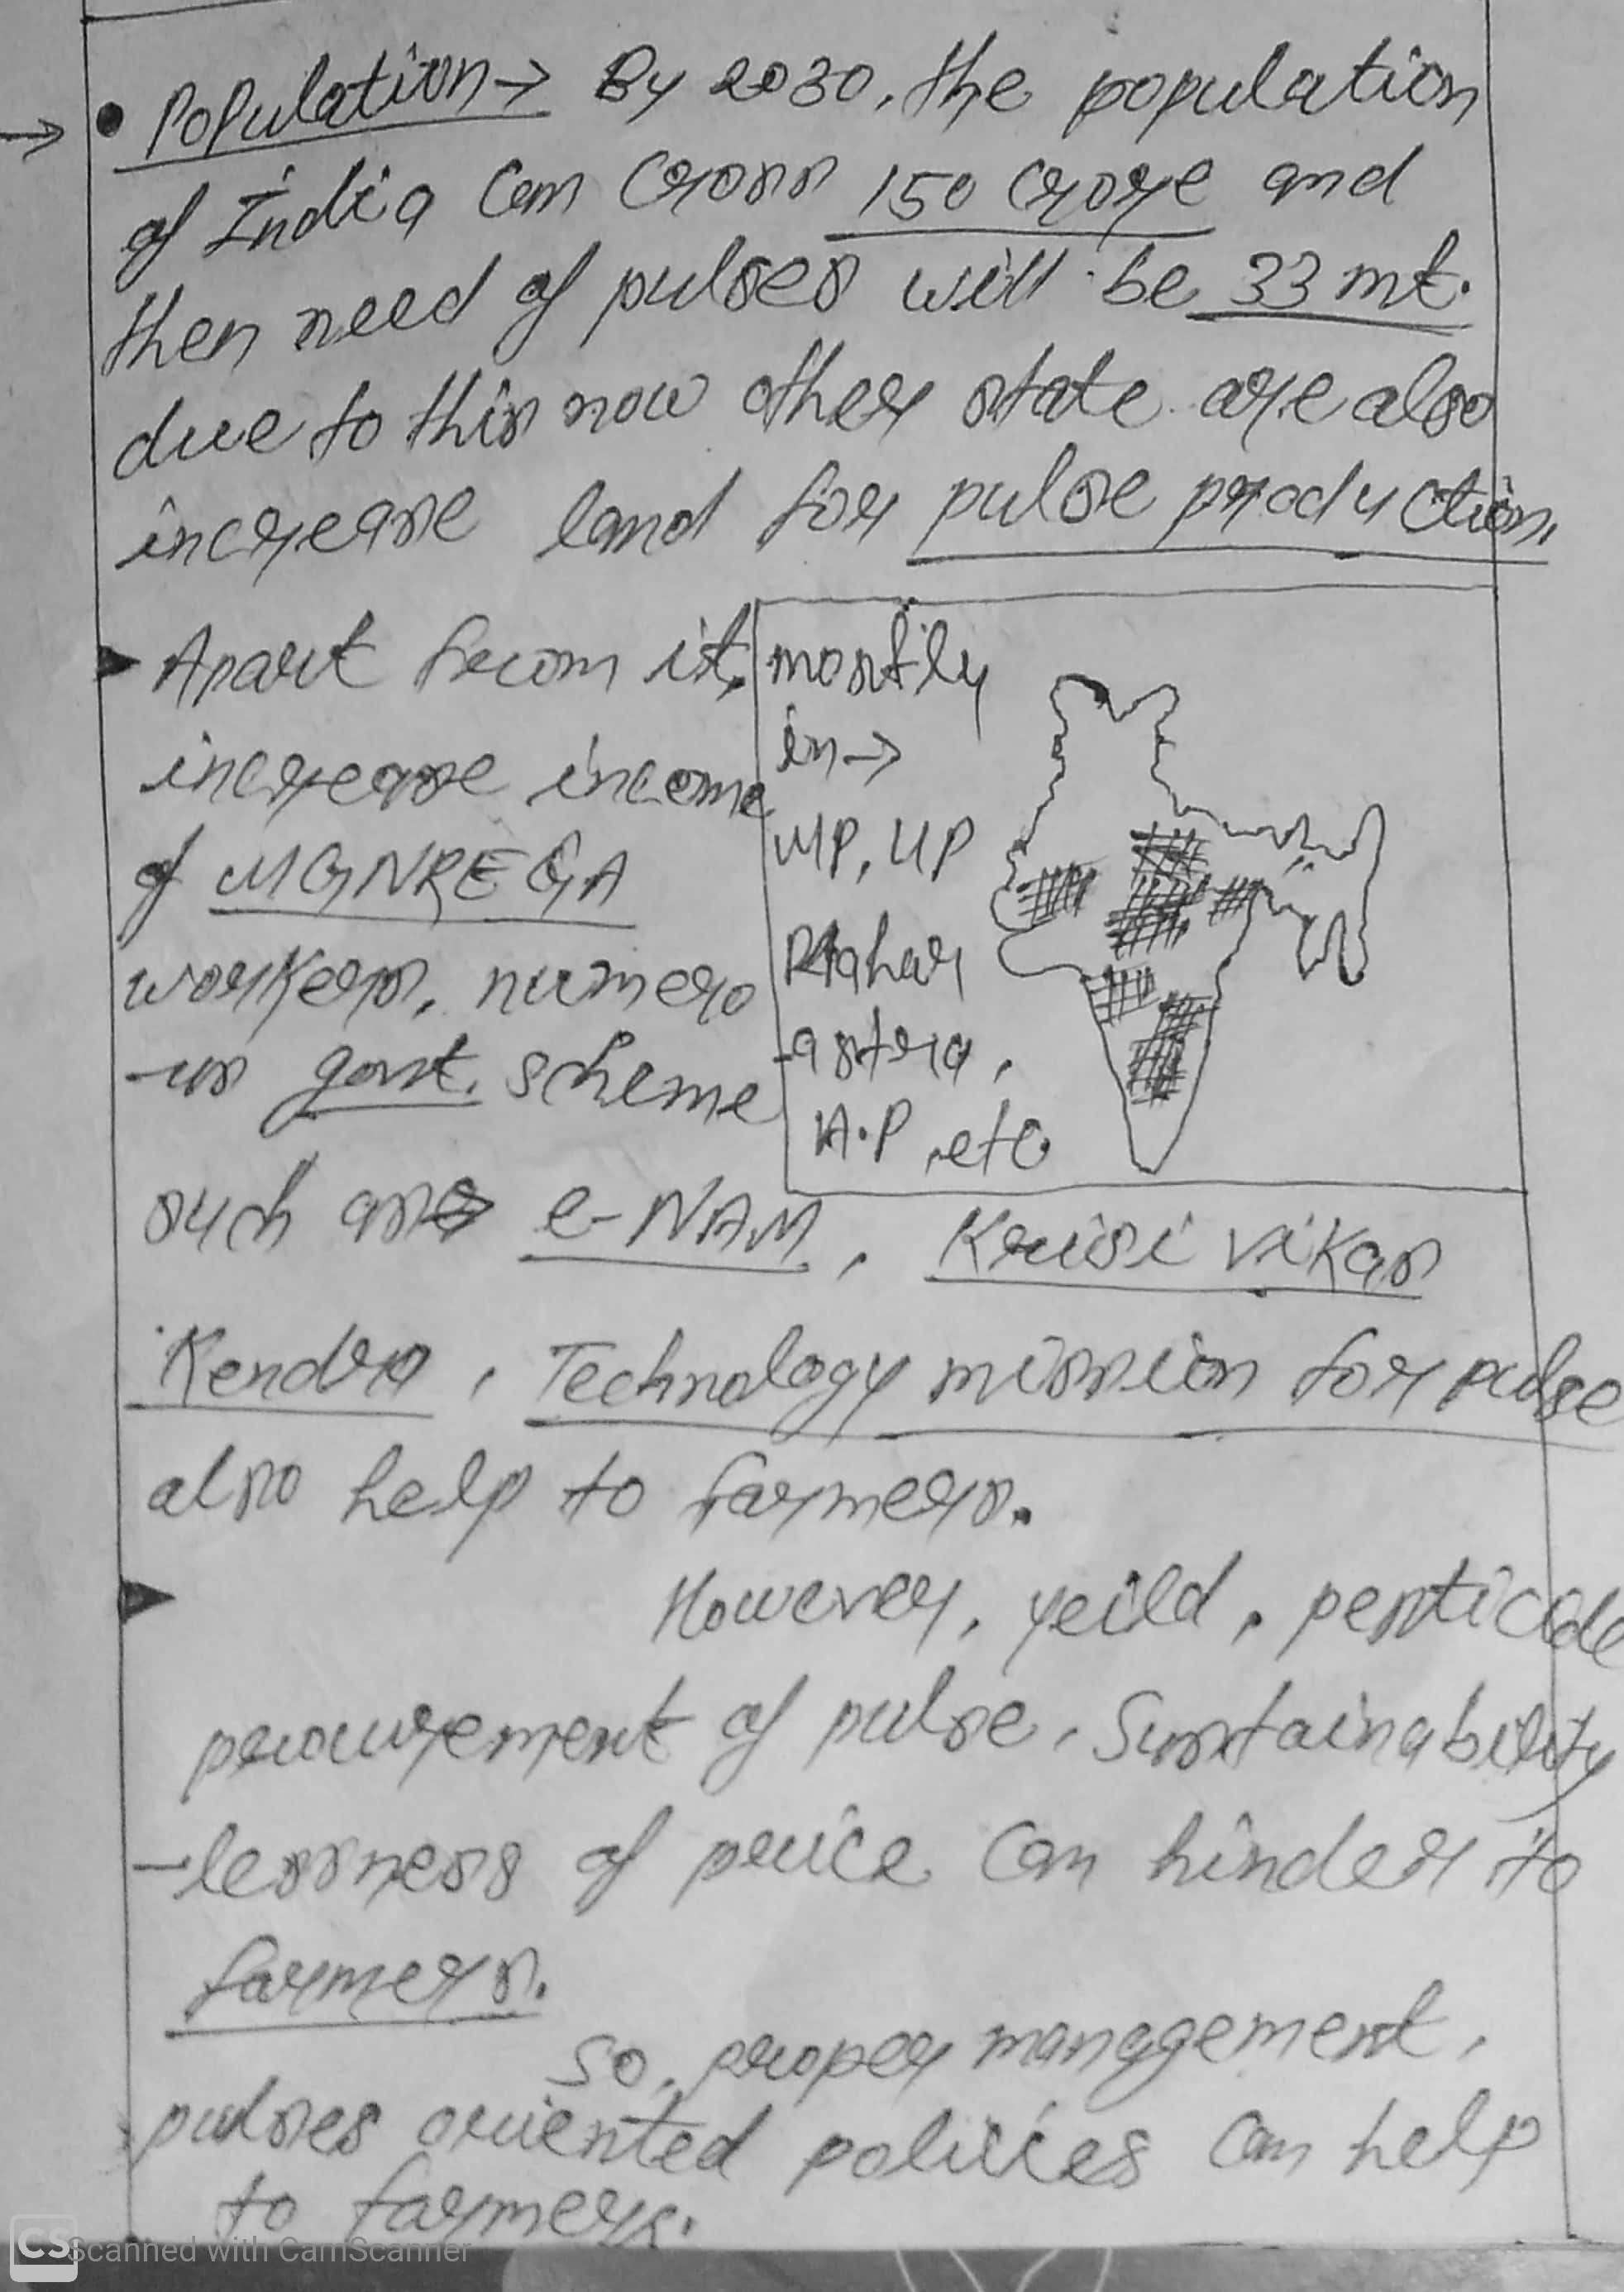 • Population → By 2030, the population
→
of India can cross 150 crore and
then need of pulses will be 33 mt.
due to this now other state are also
increase land for pulse production.
Apart from it,
increase income
of MGNREGA
workers, numero
-us govt. scheme
mostly
in →
MP, UP
Mahar
-astra,
A.P, etc.
such as e-NAM, Krisi vikas
Kendra, Technology mission for pulse
also help to farmers.
However, yeild, pesticide
procurement of pulse, Sustainability
-lessness of price can hinder to
farmers.
So, proper management,
pulses oriented policies can help
to farmers.
CS Scanned with CamScanner